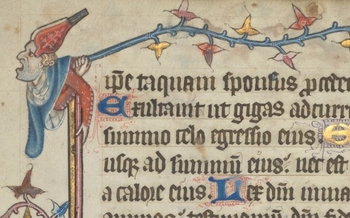 ip̄e taquam sponsus procede
Exultauit ut gigas ad curr
summo celo egressio eius E
usq; ad summum eius: nec est
a calore eius. Lex dn̄i inma